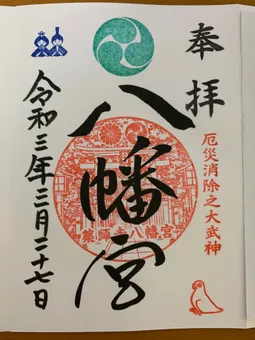 奉拝
厄災消除之大武神
八幡宮
薬師寺八幡宮
令和三年二月二十七日